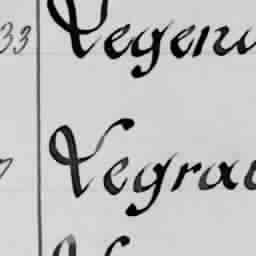 33 Legen
7 Legra